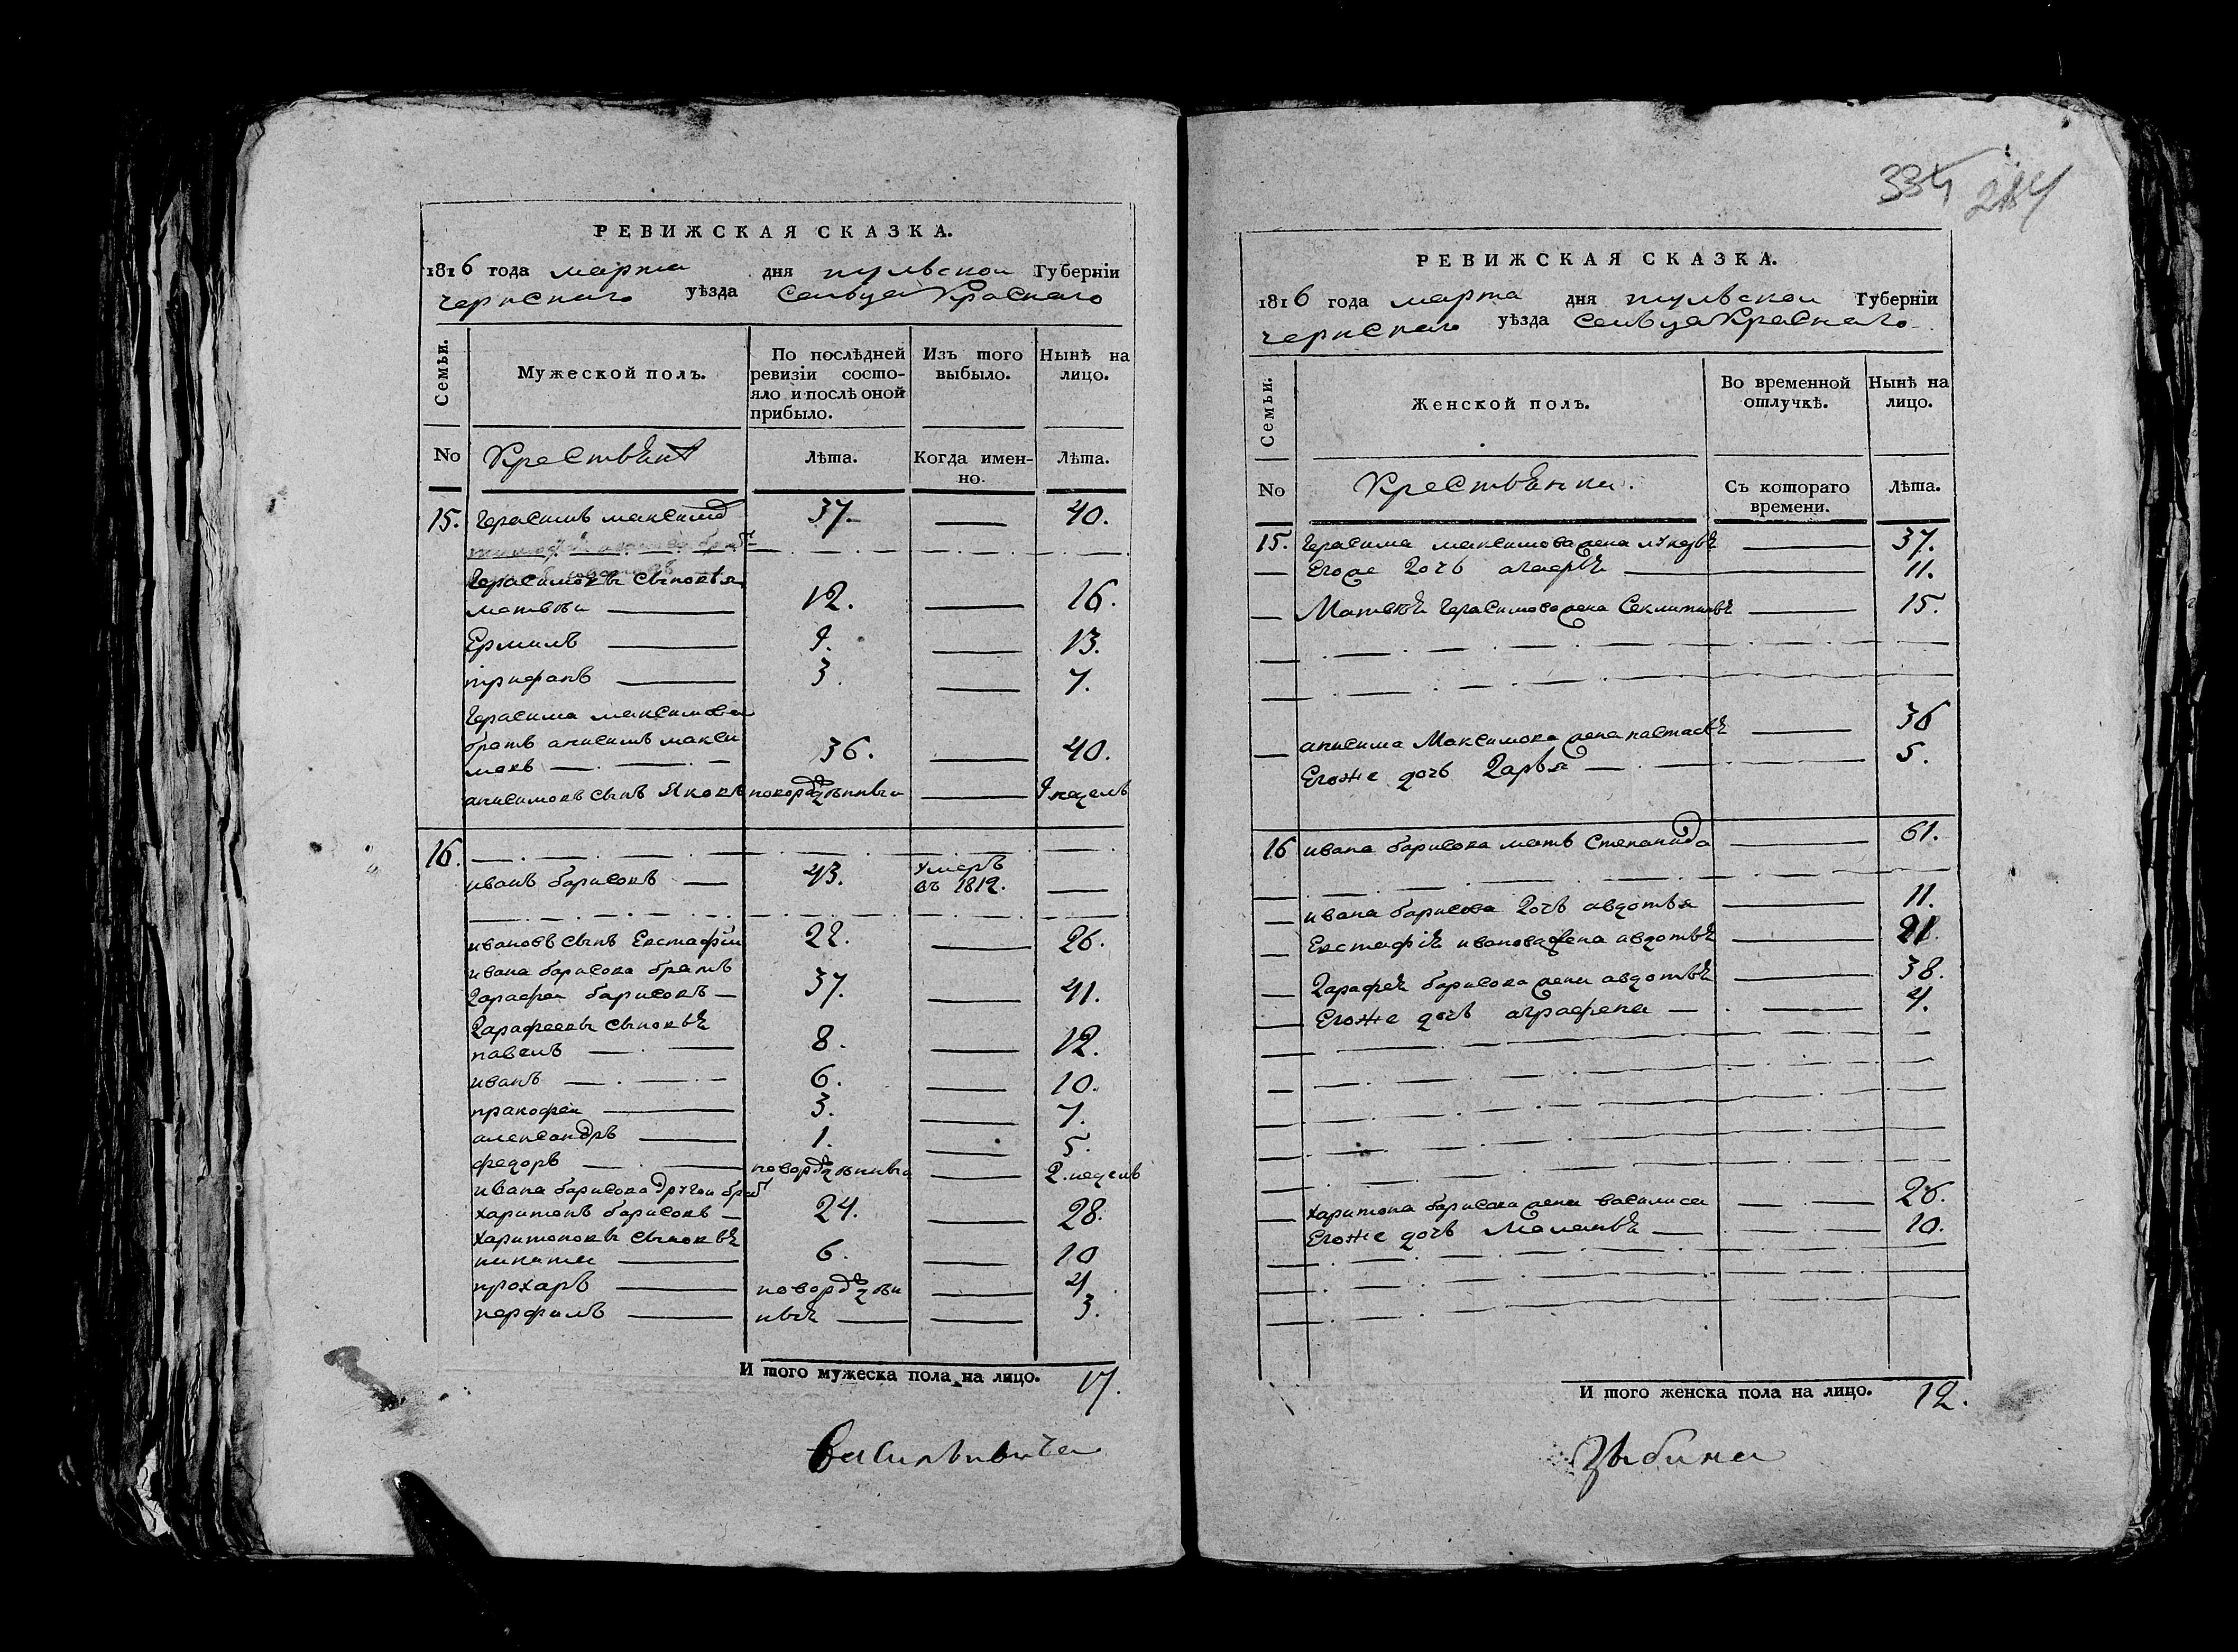 РЕВИЖСКАЯ СКАЗКА.
1816 года марта дня тульской Губерніи
чернскаго уѣзда Сельца Краснаго
Семьи.
Мужеской полъ.
По послѣдней ревизіи состо-
яло и послѣ оной
прибыло.
Изъ того
выбыло.
Нынѣ на
лицо.
No
Лѣта.
Когда имен-
но.
Лѣта.
15. Герасимъ максимо 37. 40.
Герасимовы сыновья
матвеи 12. 16.
Ермилъ 9. 13.
трифанъ 3. 7.
Герасима максимова
братъ анисимъ макси 36. 40.
мовъ
анисимовъ сынъ Яковъ 9 недель
16.
иванъ барисовъ 43. умеръ
въ 1812.
ивановъ сынъ Евстафіи 22. 26.
ивана барисова братъ
Дарафеи барисовъ 37. 41.
Дарафеевы сыновьѣ
павелъ 8. 12.
иванъ 6. 10.
пракофеи 3. 7.
александръ 1. 5.
федоръ 2. недель
ивана барисова другои брат
харитонъ барисовъ 24. 28.
харитоновы сыновьѣ
никита 6. 10
прохаръ 4
перфилъ 3.
И того мужеска пола на лицо. 17.
334 284
РЕВИЖСКАЯ СКАЗКА.
1816 года марта дня тульской Губерніи
чернскаго уѣзда сельца Краснаго
Семьи.
Женской полъ.
Во временной
отлучкѣ.
Нынѣ на
лицо.
No
Крестьянки.
Съ котораго
времени.
Лѣта.
15. Герасима максимова жена 37.
Егоже дочь 11.
Матвеѣ Герасимова жена 15.
анисима Максимова жена настасьѣ 36
Егоже дочь Дарья 5.
16 ивана барисова мать Степанида 61.
ивана барисова дочь авдотья 11.
Евстафіѣ иванова жена авдотьѣ 21.
Дарафеѣ барисова жена авдотьѣ 38.
Егоже дочь аграфена 4.
харитона барисова жена василиса 26.
Егоже дочь Маланьѣ 10.
И того женска пола на лицо. 12.
Зыбина